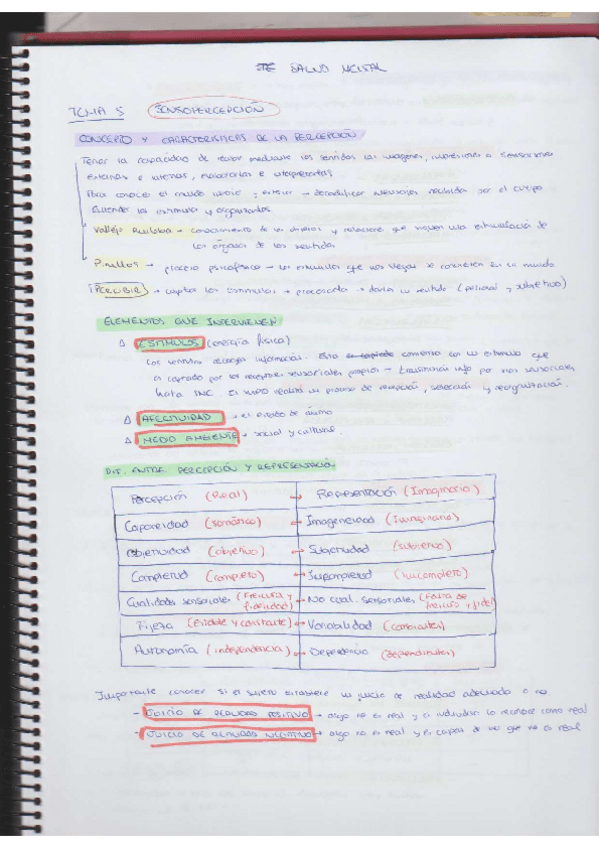 SALUD MENTAL
TEMA 5 SENSOPERCEPCIÓN
CONCEPTO Y CARACTERISTICAS DE LA PERCEPCIÓN
Tener la capacidad de recibir mediante los sentidos las imagenes, impresiones o sensaciones
externas e internas, elaborarlas e interpretarlas
Para conocer el mundo interior y exterior → decodificar mensajes recibidos por el cuerpo
los estimulos y organizarlos
Vallejo Ruiloba → conocimiento de los objetos y relaciones que siguen una estimulación de
los órganos de los sentidos
Pinillos → proceso psicofísico → los estimulos que nos llegan se convierten en mundo
PERCIBIR → captar los estimulos → procesarla → darla un sentido (personal y subjetivo)
ELEMENTOS QUE INTERVIENEN
Δ ESTIMULOS (energia física)
Los sentidos recogen informacion. Esto comienza con un estimulo que
es captado por los receptores sensoriales propios → transmision info por vias sensoriales
hasta SNC. El realiza un proceso de recepción, selección y reorganización.
Δ AFECTIVIDAD → el estado de ánimo
Δ MEDIO AMBIENTE → social y cultural
DIF. ENTRE PERCEPCIÓN Y REPRESENTACIÓN
Percepción (Real) ↔ Representación (Imaginario)
Corporeidad (somático) ↔ Imagineidad (Imaginario)
Objetividad (objetivo) ↔ Subjetividad (subjetivo)
Completud (completo) ↔ Incompletud (incompleto)
Cualidades sensoriales (frescura y fidelidad) ↔ No cual. sensoriales (Falta de frescura y fidel)
Fijeza (estable y constante) ↔ Variabilidad (cambiantes)
Autonomía (independencia) ↔ Dependencia (dependientes)
Importante conocer si el sujeto establece un juicio de realidad adecuado o no
- JUICIO DE REALIDAD POSITIVO → algo no es real y el individuo lo reconoce como real
- JUICIO DE REALIDAD NEGATIVO → algo no es real y es capaz de ver que no es real